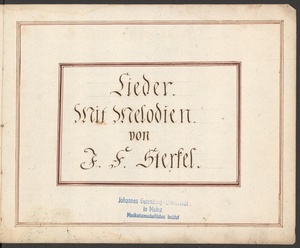 Lieder.
Mit Melodien.
von
J. F. Sterkel.
Johannes Gutenberg-Universität
in Mainz
Musikwissenschaftliches Institut